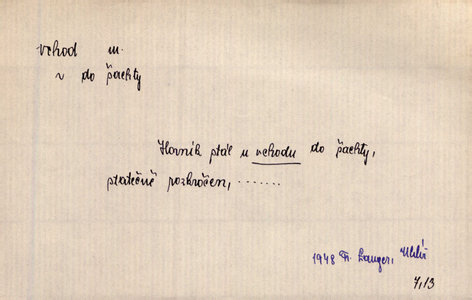 vchod m.
v do šachty
Horník stál u vchodu do šachty,
statečně rozkročen, .......
1948 Fr. Langer, Uhlíř
4,13